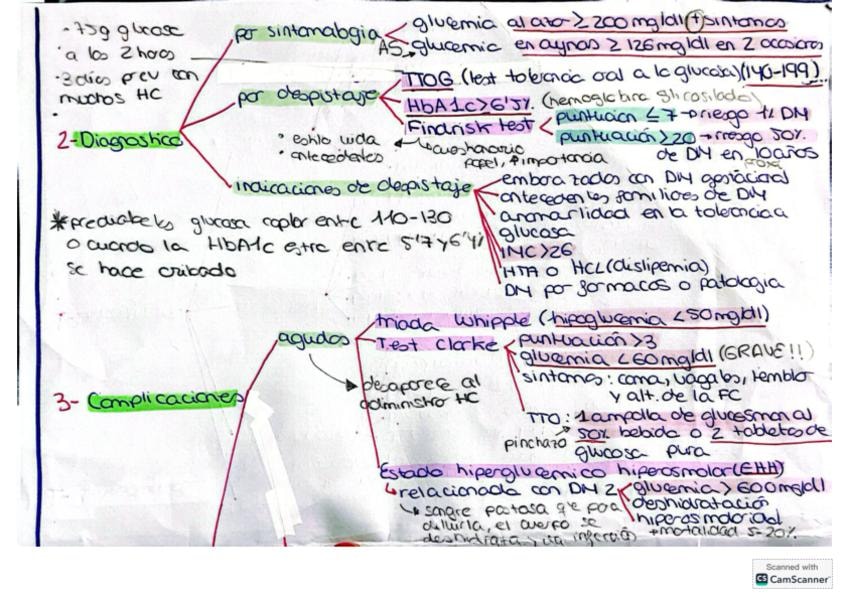 -75g glucosa
·a las 2 horas
-3 días prev con
muchos HC
2-Diagnostico
por sintomatología
glucemia al azar ≥ 200 mg/dl + sintomas
AS
glucemia en ayunas ≥ 126 mg/dl en 2 ocasiones
por despistaje
TTOG (test tolerancia oral a la glucosa) (140-199)
HbA1c > 6'5% (hemoglobina glicosilada)
Findrisk test
puntuación ≤ 7 → riesgo 1% DM
puntuación > 20 → riesgo 50%
de DM en 10 años
· estilo vida
· antecedentes
cuestionario
papel, importancia
indicaciones de despistaje
embarazadas con DM gestacional
antecedentes familiares de DM
anormarlidad en la tolerancia a
glucosa
INC > 26
HTA o HCL (dislipemia)
DM por farmacos o patologia
* prediabetes glucosa capilar entre 110-130
o cuando la HbA1c esta entre 5'7 y 6'4%
se hace cribado
3- Complicaciones
agudas
desaparece al
administrar HC
triada Whipple (hipoglucemia < 50 mg/dl)
Test Clarke
puntuación > 3
glucemia < 60 mg/dl (GRAVE!!)
sintomas: coma, vagales, temblor
y alt. de la FC
TTO: 1 ampolla de glucosmon al
50% bebida o 2 tabletas de
glucosa pura
pinchazo
Estado hiperglucemico hiperosmolar (EHH)
relacionada con DM 2
glucemia > 600 mg/dl
deshidratación
hiperosmolaridad
+mortalidad 5-20%
sangre pastosa que para
diluirla, el cuerpo se
deshidrata, via infección
Scanned with
CS CamScanner